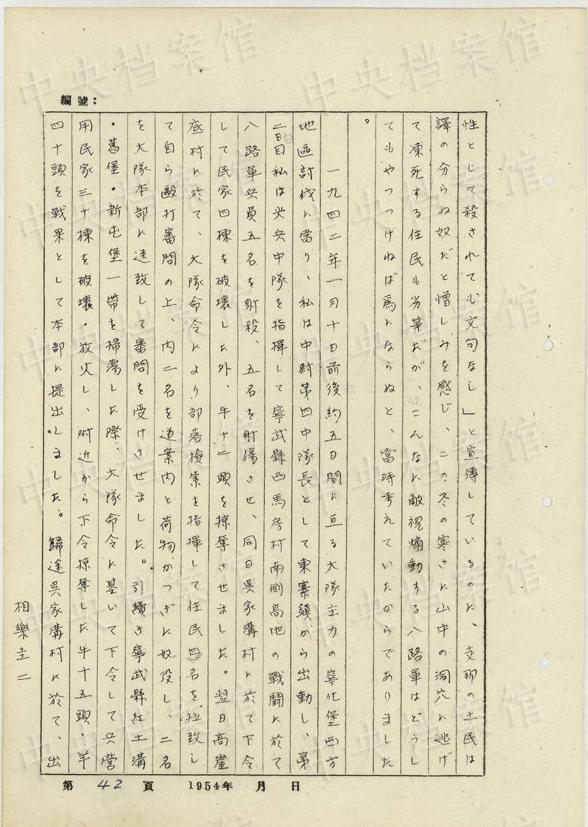 編號：
性として殺されても文句なし」と宣傳しているのに、支那の土民は
譯の分らぬ奴だと憎しみを感じ、この冬の寒さに山中の洞穴に逃げ
て凍死する住民も劣等だが、こんなに敵視煽動する八路軍はどうし
てもやつつけねば爲にならぬと、當時考えていたからでありました
。
一九四二年一月十日前後約五日間に亘る大隊主力の寧化堡西方
地區討伐に當り、私は中尉第四中隊長として東寨鎮から出動し、第
二日目私は尖兵中隊を指揮して寧武縣西馬房村南側高地の戰鬪に於て
八路軍兵員五名を射殺、五名を射傷させ、同日吳家溝村に於て下令
して民家四棟を破壞した外、牛十二頭を掠奪させました。翌日高崖
底村に於て、大隊命令により部落搜索を指揮して住民四名を拉致し
て自ら毆打審問の上、内二名を道案内と荷物かつぎに奴役し、二名
を大隊本部に送致して審問を受けさせました。引續き寧武縣紅土溝
・舊堡・新屯堡一帶を掃蕩した際、大隊命令に基いて下令して兵營
用民家三十棟を破壞・放火し、附近から下令掠奪した牛十五頭・羊
四十頭を戰果として本部に提出しました。歸途吳家溝村に於て、出
相樂圭二
第 42 頁 1954年 月 日
中央档案馆